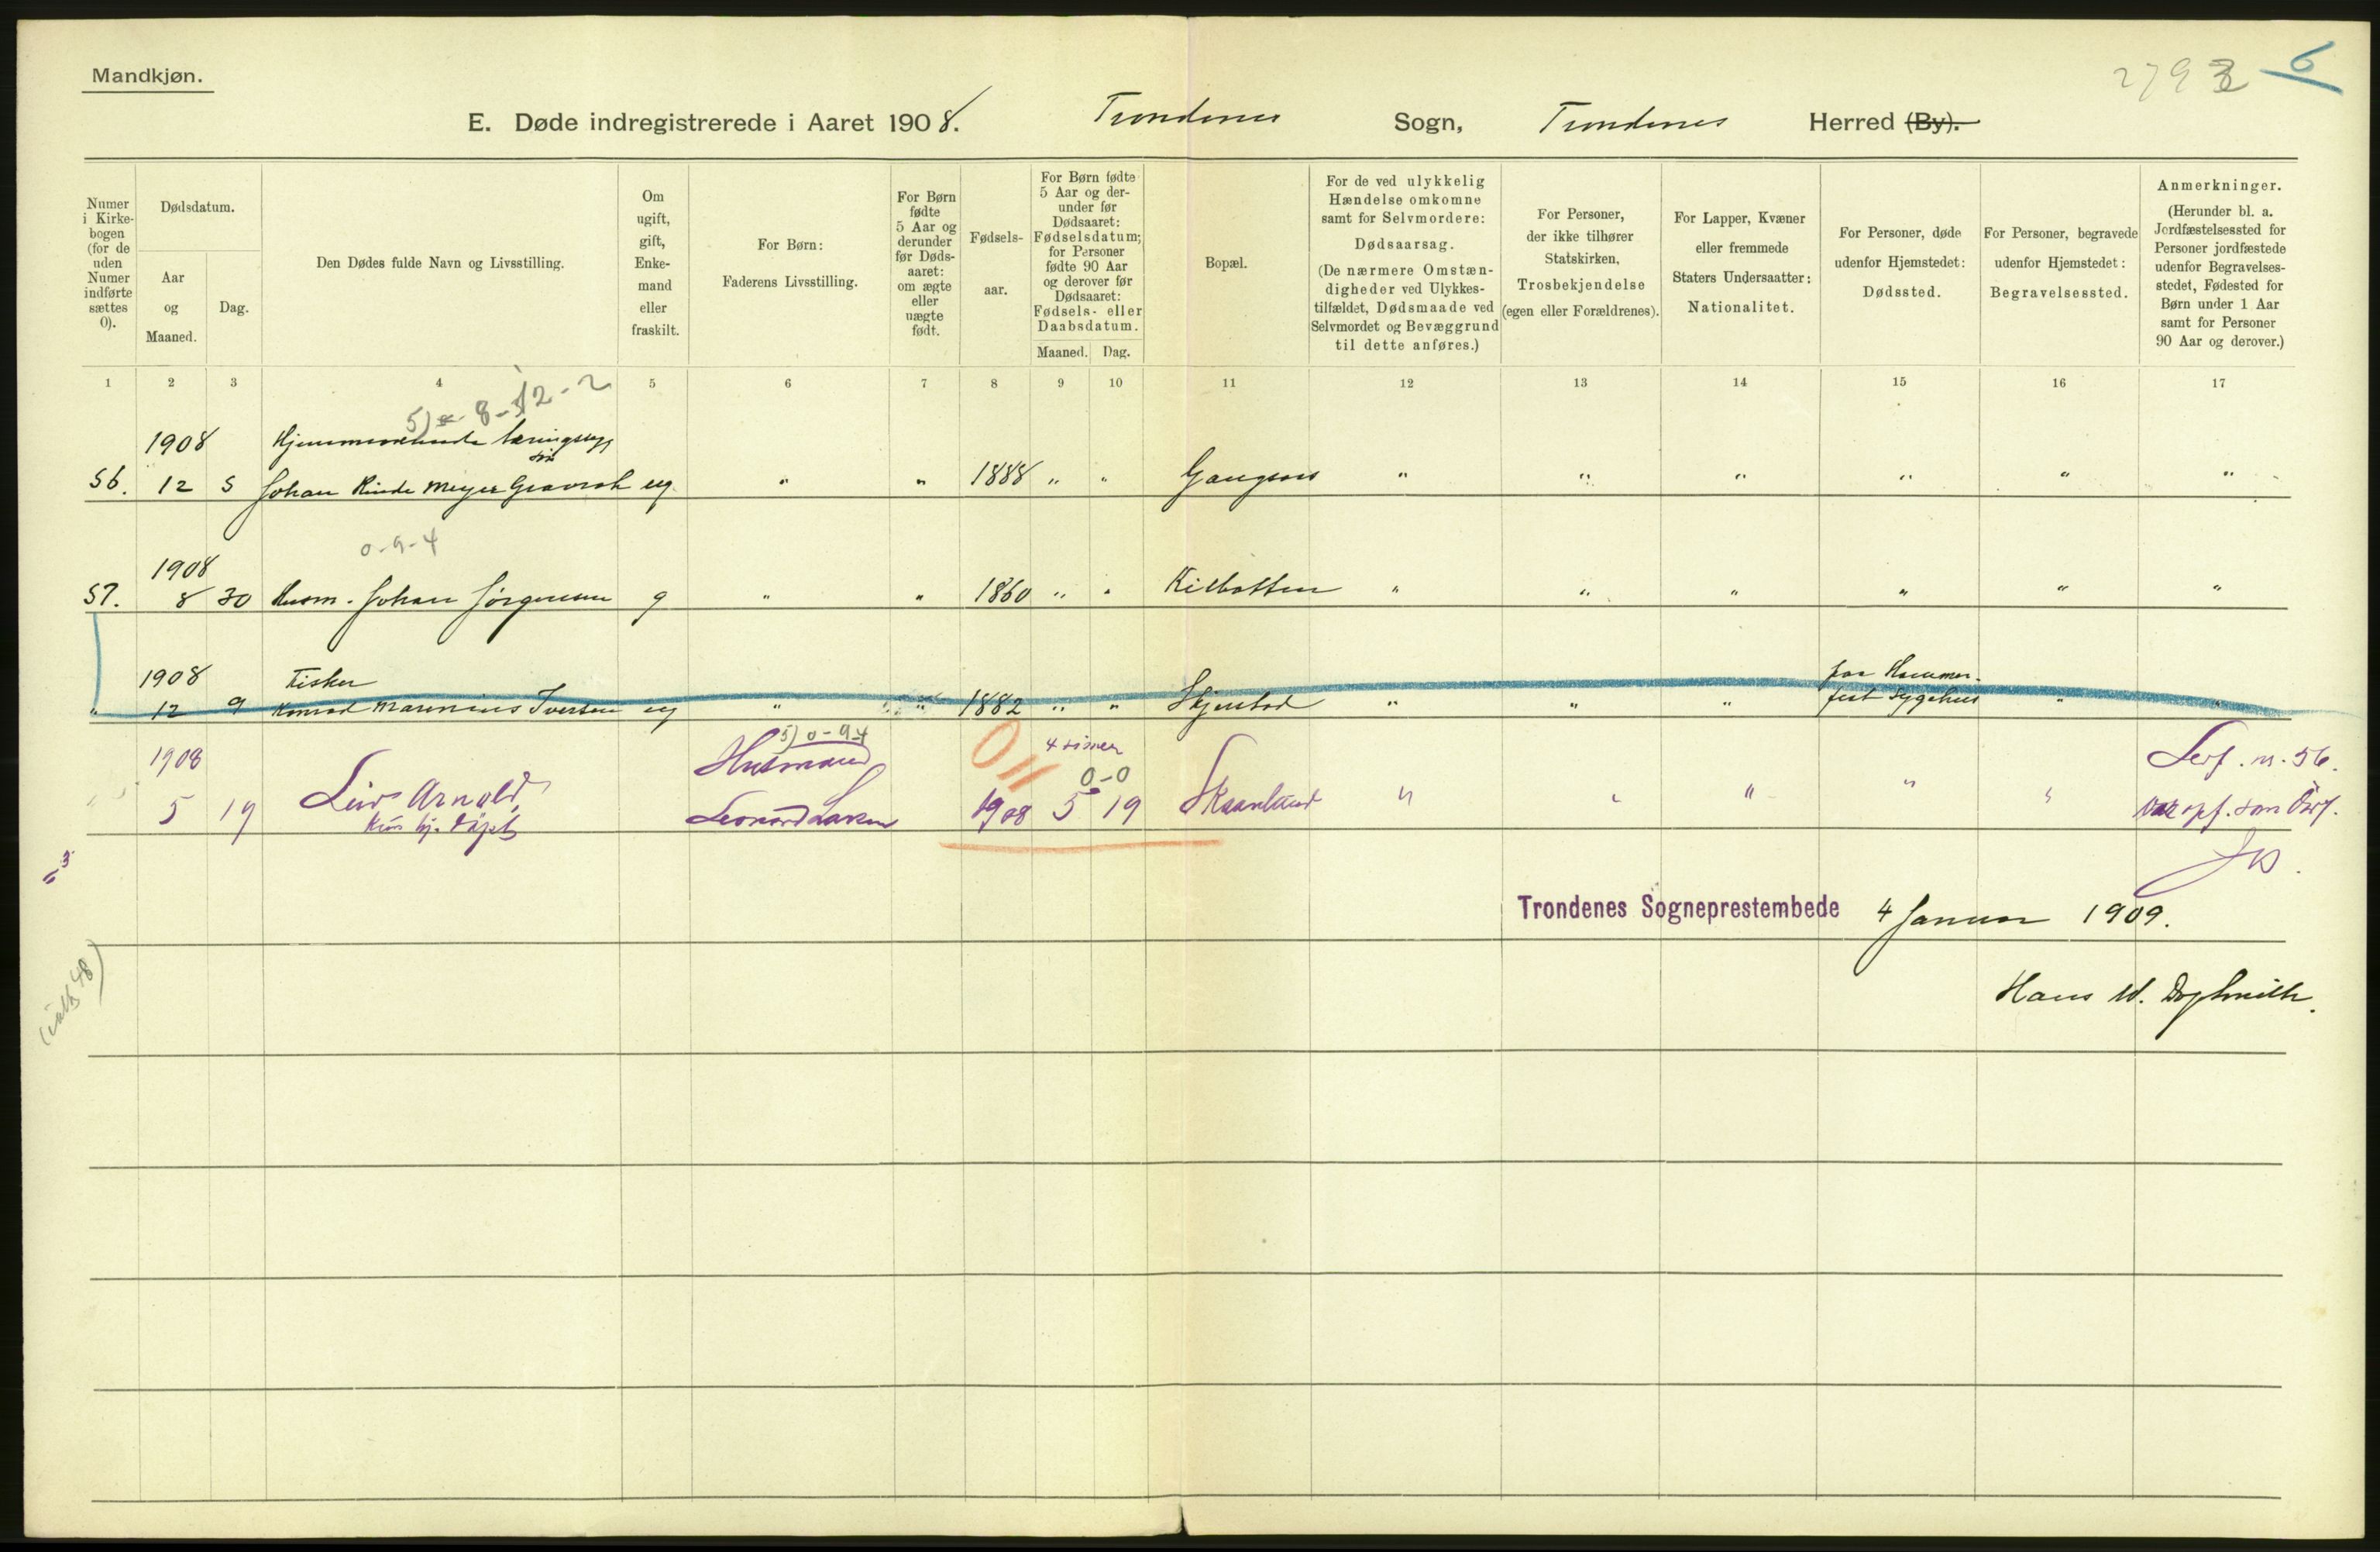 Mandkjøn.
2793 6
E. Døde indregistrerede i Aaret 1908. Trondenes Sogn, Trondenes Herred (By).
Numer i Kirke-bogen (for de uden Numer indførte sættes 0).
Dødsdatum.
Aar og Maaned.
Dag.
Den Dødes fulde Navn og Livsstilling.
Om ugift, gift, Enke-mand eller fraskilt.
For Børn: Faderens Livsstilling.
For Børn fødte 5 Aar og derunder før Døds-aaret: om ægte eller uægte født.
Fødsels-aar.
For Børn fødte 5 Aar og der-under før Dødsaaret: Fødselsdatum; for Personer fødte 90 Aar og derover før Dødsaaret: Fødsels- eller Daabsdatum.
Maaned. Dag.
Bopæl.
For de ved ulykkelig Hændelse omkomne samt for Selvmordere: Dødsaarsag. (De nærmere Omstæn-digheder ved Ulykkes-tilfældet, Dødsmaade ved Selvmordet og Bevæggrund til dette anføres.)
For Personer, der ikke tilhører Statskirken, Trosbekjendelse (egen eller Forældrenes).
For Lapper, Kvæner eller fremmede Staters Undersaatter: Nationalitet.
For Personer, døde udenfor Hjemstedet: Dødssted.
For Personer, begravede udenfor Hjemstedet: Begravelsessted.
Anmerkninger. (Herunder bl. a. Jordfæstelsessted for Personer jordfæstede udenfor Begravelses-stedet, Fødested for Børn under 1 Aar samt for Personer 90 Aar og derover.)
1 2 3 4 5 6 7 8 9 10 11 12 13 14 15 16 17
8-12-2
1908 Hjemmeværende
56. 12 5 Johan Meyer ug " " 1888 " " Gangsaas " " " " " "
0-9-4
1908
57. 8 30 Husm. Johan Jørgensen g " " 1860 " " Kilbotten " " " " " "
1908 Fisker paa Hammer-
" 12 9 Konrad Marenius Iversen ug " " 1882 " " " " " fest Sygehus " "
5) 0-9-4
1908 Husmand 4 timer 0-0
5 19 Leiv Arnold, Leonard Larsen 1908 5 19 Skaanland " " " " "
hj. døpt
n. 56.
opf. som
Trondenes Sogneprestembede 4 Januar 1909.
Hans